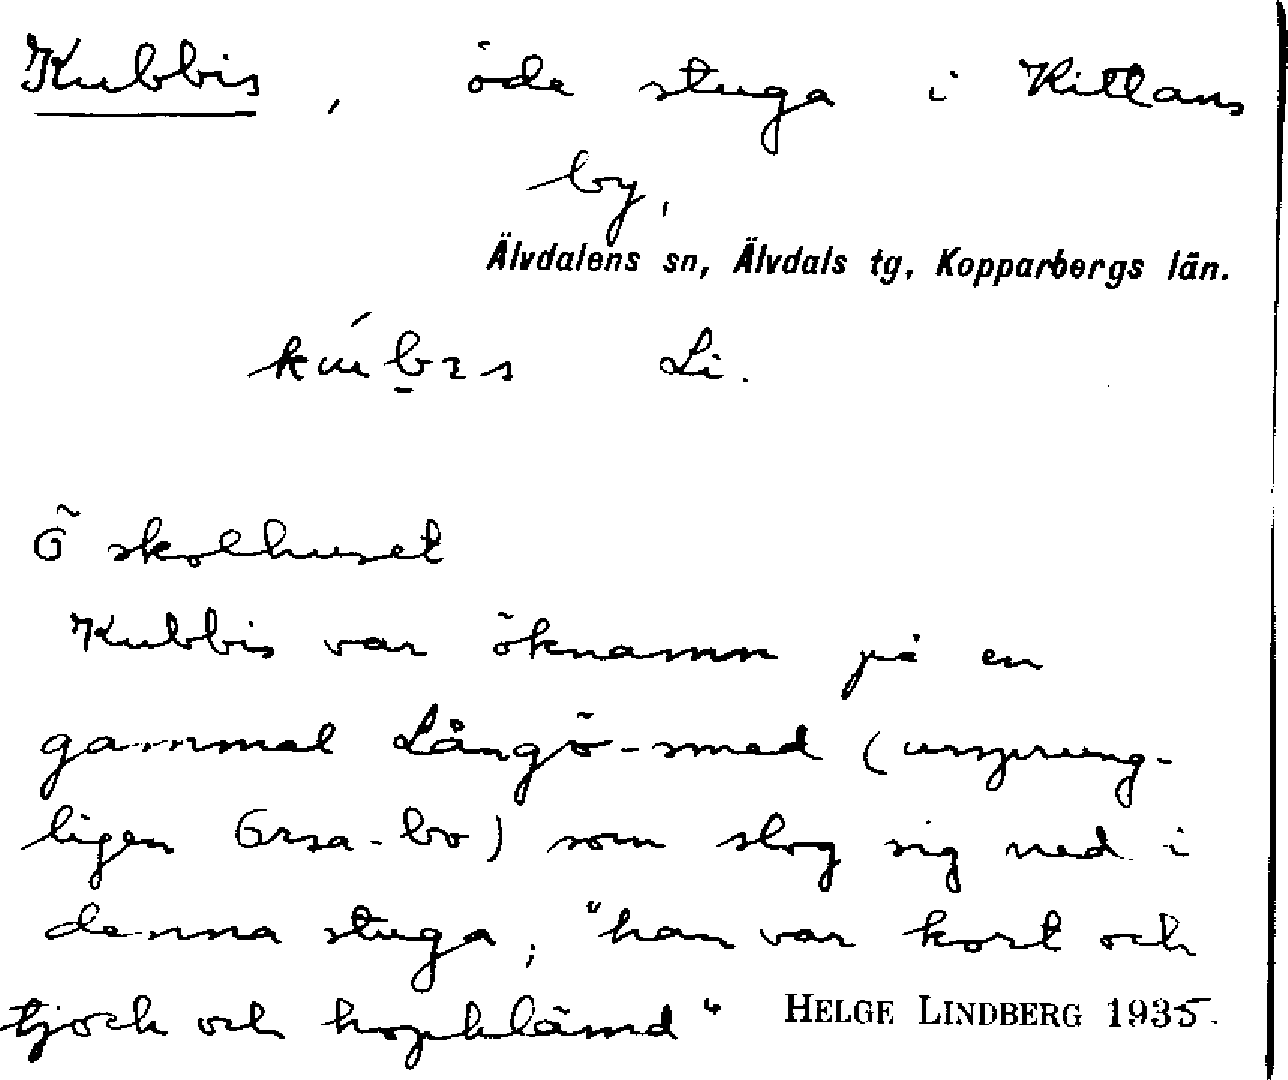 Kubbis, öde stuga i Kittans
by,
Älvdalens sn, Älvdals tg, Kopparbergs län.
Li.
Ö skolhuset
Kubbis var öknamn på en
gammal Långö-smed (ursprung-
ligen Orsa-bo) som slog sig ned i
denna stuga; "han var kort och
tjock och hopklämd"
HELGE LINDBERG 1935.